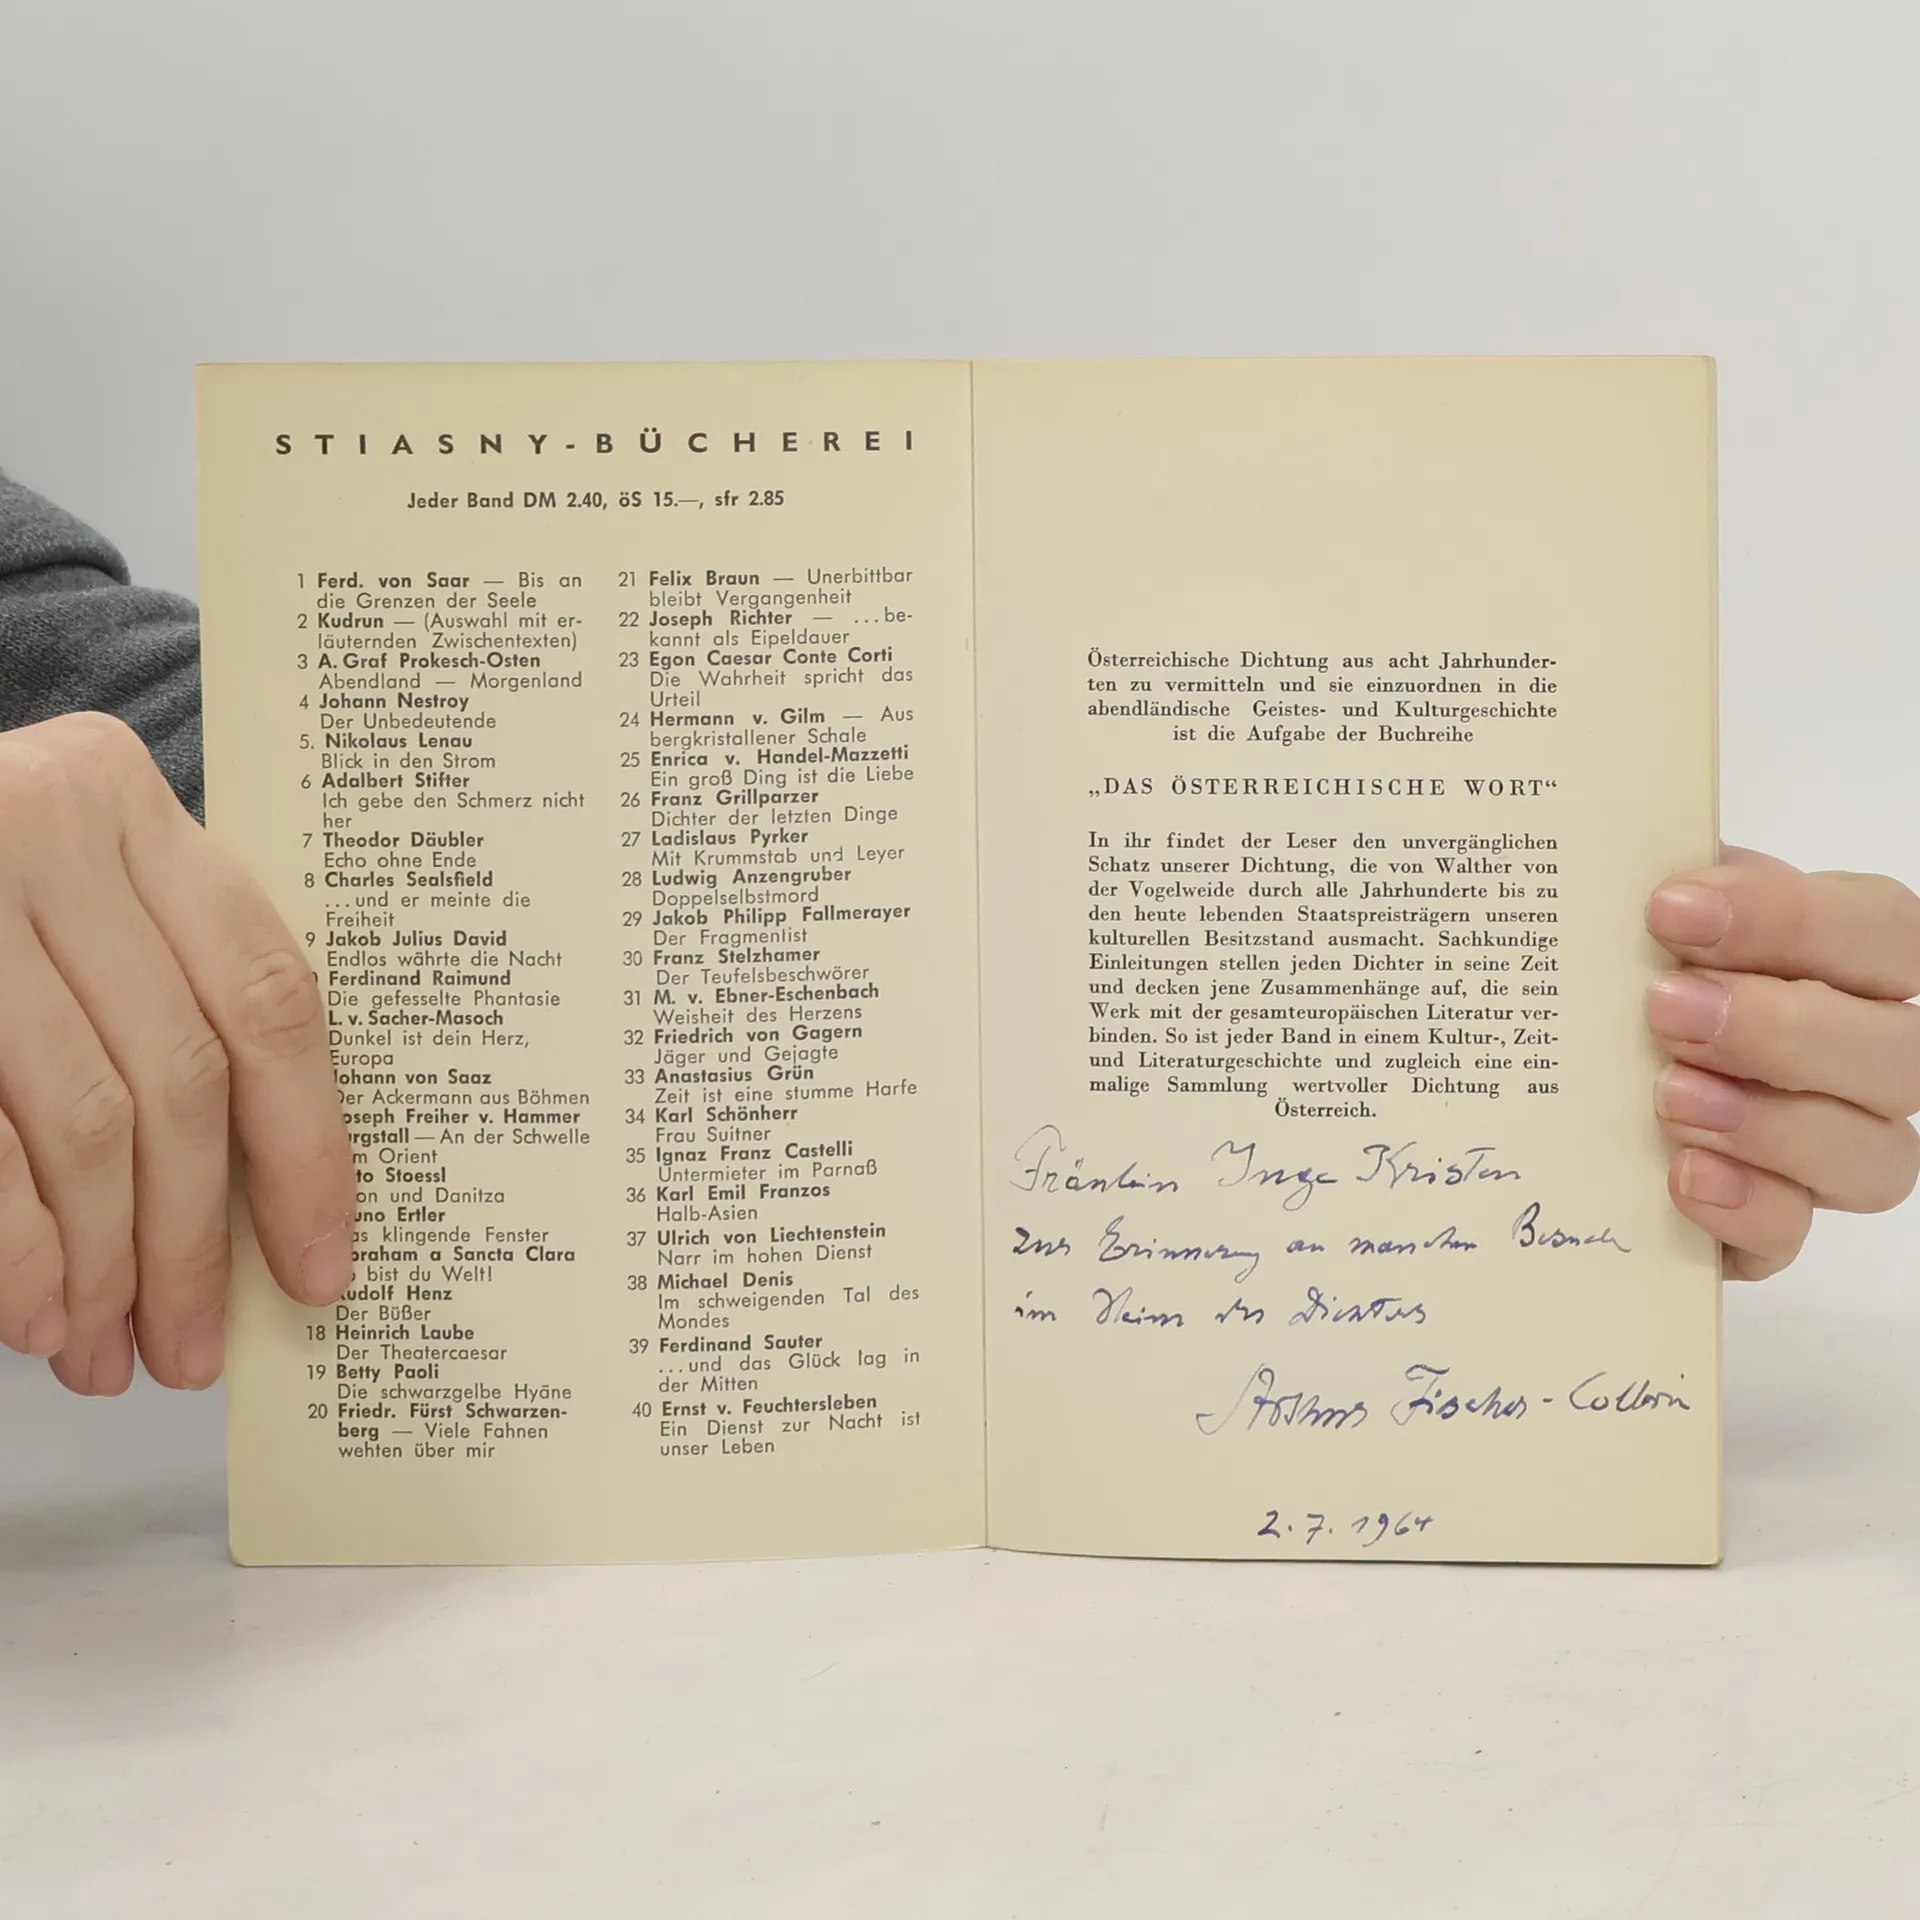 STIASNY-BÜCHEREI
Jeder Band DM 2.40, öS 15.—, sfr 2.85
1 Ferd. von Saar — Bis an
die Grenzen der Seele
2 Kudrun — (Auswahl mit er-
läuternden Zwischentexten)
3 A. Graf Prokesch-Osten
Abendland — Morgenland
4 Johann Nestroy
Der Unbedeutende
5. Nikolaus Lenau
Blick in den Strom
6 Adalbert Stifter
Ich gebe den Schmerz nicht
her
7 Theodor Däubler
Echo ohne Ende
8 Charles Sealsfield
...und er meinte die
Freiheit
9 Jakob Julius David
Endlos währte die Nacht
Ferdinand Raimund
Die gefesselte Phantasie
L. v. Sacher-Masoch
Dunkel ist dein Herz,
Europa
Johann von Saaz
Der Ackermann aus Böhmen
oseph Freiher v. Hammer
urgstall — An der Schwelle
m Orient
to Stoessl
on und Danitza
uno Ertler
as klingende Fenster
braham a Sancta Clara
bist du Welt!
Rudolf Henz
Der Büßer
18 Heinrich Laube
Der Theatercaesar
19 Betty Paoli
Die schwarzgelbe Hyäne
20 Friedr. Fürst Schwarzen-
berg — Viele Fahnen
wehten über mir
21 Felix Braun — Unerbittbar
bleibt Vergangenheit
22 Joseph Richter — ...be-
kannt als Eipeldauer
23 Egon Caesar Conte Corti
Die Wahrheit spricht das
Urteil
24 Hermann v. Gilm — Aus
bergkristallener Schale
25 Enrica v. Handel-Mazzetti
Ein groß Ding ist die Liebe
26 Franz Grillparzer
Dichter der letzten Dinge
27 Ladislaus Pyrker
Mit Krummstab und Leyer
28 Ludwig Anzengruber
Doppelselbstmord
29 Jakob Philipp Fallmerayer
Der Fragmenlist
30 Franz Stelzhamer
Der Teufelsbeschwörer
31 M. v. Ebner-Eschenbach
Weisheit des Herzens
32 Friedrich von Gagern
Jäger und Gejagte
33 Anastasius Grün
Zeit ist eine stumme Harfe
34 Karl Schönherr
Frau Suitner
35 Ignaz Franz Castelli
Untermieter im Parnaß
36 Karl Emil Franzos
Halb-Asien
37 Ulrich von Liechtenstein
Narr im hohen Dienst
38 Michael Denis
Im schweigenden Tal des
Mondes
39 Ferdinand Sauter
...und das Glück lag in
der Mitten
40 Ernst v. Feuchtersleben
Ein Dienst zur Nacht ist
unser Leben
Österreichische Dichtung aus acht Jahrhunder-
ten zu vermitteln und sie einzuordnen in die
abendländische Geistes- und Kulturgeschichte
ist die Aufgabe der Buchreihe
„DAS ÖSTERREICHISCHE WORT“
In ihr findet der Leser den unvergänglichen
Schatz unserer Dichtung, die von Walther von
der Vogelweide durch alle Jahrhunderte bis zu
den heute lebenden Staatspreisträgern unseren
kulturellen Besitzstand ausmacht. Sachkundige
Einleitungen stellen jeden Dichter in seine Zeit
und decken jene Zusammenhänge auf, die sein
Werk mit der gesamteuropäischen Literatur ver-
binden. So ist jeder Band in einem Kultur-, Zeit-
und Literaturgeschichte und zugleich eine ein-
malige Sammlung wertvoller Dichtung aus
Österreich.
Fräulein Inge Kristen
zur Erinnerung an manchen Besuch
im Heim des Dichters
Arthur Fischer-Colbrie
2.7.1964